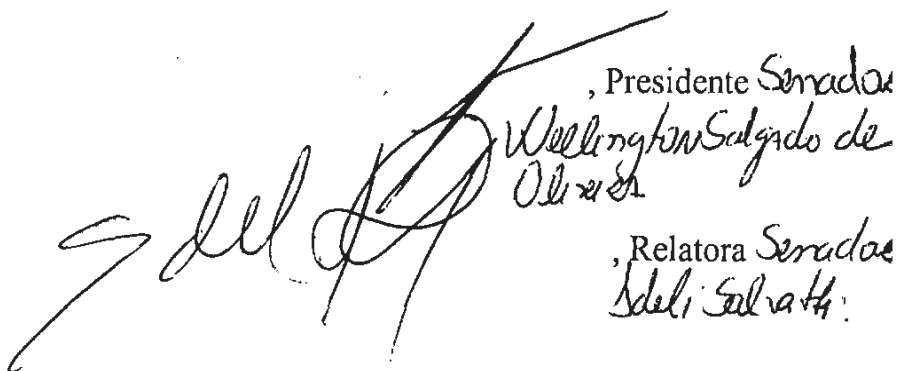 , Presidente Senador
Wellington Salgado de
Oliveira
, Relatora Senadora
Ideli Salvatti.